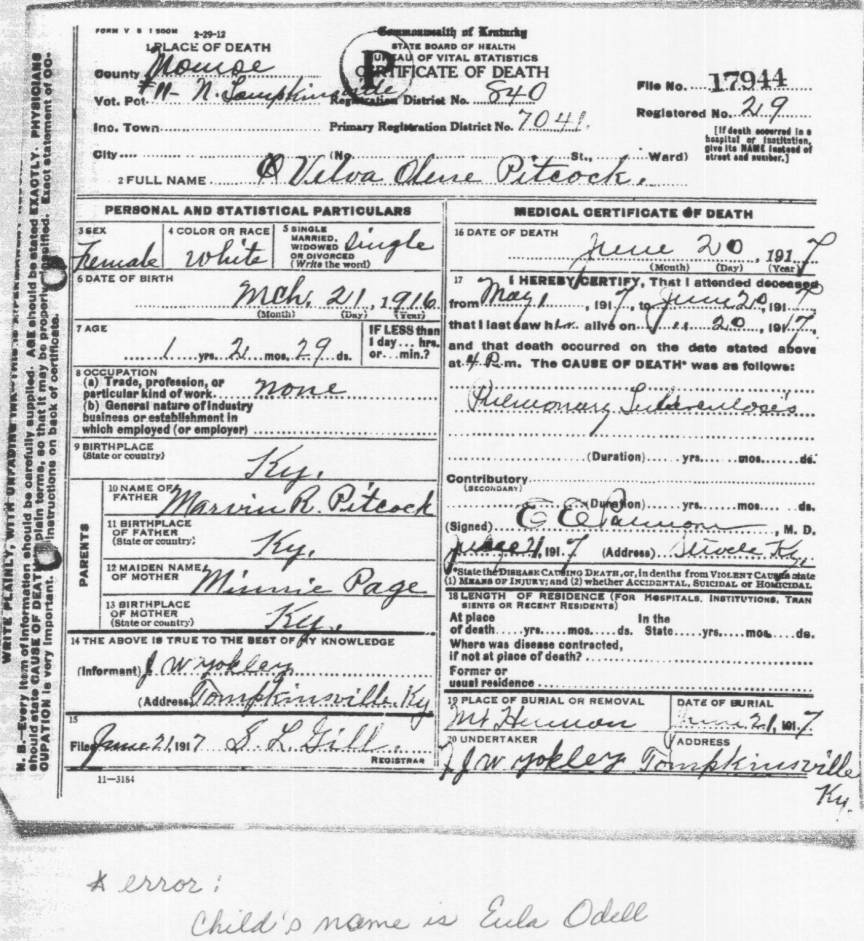 FORM V S 1 500M 2-29-12
1 PLACE OF DEATH
County Monroe
Vot. Pct # 11- N. Tompkinsville
Inc. Town
City (No. St., Ward)
Commonwealth of Kentucky
STATE BOARD OF HEALTH
BUREAU OF VITAL STATISTICS
CERTIFICATE OF DEATH
P
Registration District No. 840
Primary Registration District No. 7041.
File No. 17944
Registered No. 29
[If death occurred in a
hospital or institution,
give its NAME instead of
street and number.]
2 FULL NAME Velva Olene Pitcock.
PERSONAL AND STATISTICAL PARTICULARS
3 SEX
Female
4 COLOR OR RACE
White
5 SINGLE
MARRIED,
WIDOWED
OR DIVORCED
(Write the word)
Single
6 DATE OF BIRTH
Mch. 21, 1916
(Month) (Day) (Year)
7 AGE
1 yrs. 2 mos. 29 ds.
IF LESS than
1 day... hrs.
or... min.?
8 OCCUPATION
(a) Trade, profession, or
particular kind of work none
(b) General nature of industry
business or establishment in
which employed (or employer)
9 BIRTHPLACE
(State or country)
Ky.
PARENTS
10 NAME OF
FATHER
Marvin R. Pitcock
11 BIRTHPLACE
OF FATHER
(State or country)
Ky.
12 MAIDEN NAME
OF MOTHER
Minnie Page
13 BIRTHPLACE
OF MOTHER
(State or country)
Ky.
14 THE ABOVE IS TRUE TO THE BEST OF MY KNOWLEDGE
(Informant) J W Yokley
(Address) Tompkinsville, Ky
15
Filed June 21, 1917 S. L. Gill.
REGISTRAR
11-3184
MEDICAL CERTIFICATE OF DEATH
16 DATE OF DEATH
June 20, 1917
(Month) (Day) (Year)
17 I HEREBY CERTIFY, That I attended deceased
from May 1, 1917, to June 20, 1917,
that I last saw her alive on 20, 1917,
and that death occurred on the date stated above
at 4 P.m. The CAUSE OF DEATH* was as follows:
Pulmonary Tuberculosis
(Duration) yrs. mos. ds.
Contributory
(SECONDARY)
(Duration) yrs. mos. ds.
(Signed) E E , M. D.
June 21, 1917 (Address) Ky.
*State the DISEASE CAUSING DEATH, or, in deaths from VIOLENT CAUSES state
(1) MEANS OF INJURY; and (2) whether ACCIDENTAL, SUICIDAL or HOMICIDAL
18 LENGTH OF RESIDENCE (FOR HOSPITALS, INSTITUTIONS, TRAN
SIENTS OR RECENT RESIDENTS)
At place In the
of death yrs. mos. ds. State yrs. mos. ds.
Where was disease contracted,
if not at place of death?
Former or
usual residence
19 PLACE OF BURIAL OR REMOVAL
Mt Hermon
DATE OF BURIAL
June 21, 1917
20 UNDERTAKER
J W Yokley
ADDRESS
Tompkinsville
Ky.
WRITE PLAINLY, WITH UNFADING INK—THIS IS A PERMANENT
N. B.—Every item of information should be carefully supplied. AGE should be stated EXACTLY. PHYSICIANS
should state CAUSE OF DEATH in plain terms, so that it may be properly classified. Exact statement of OC-
CUPATION is very important. Instructions on back of certificate.
* error:
Child's name is Eula Odell